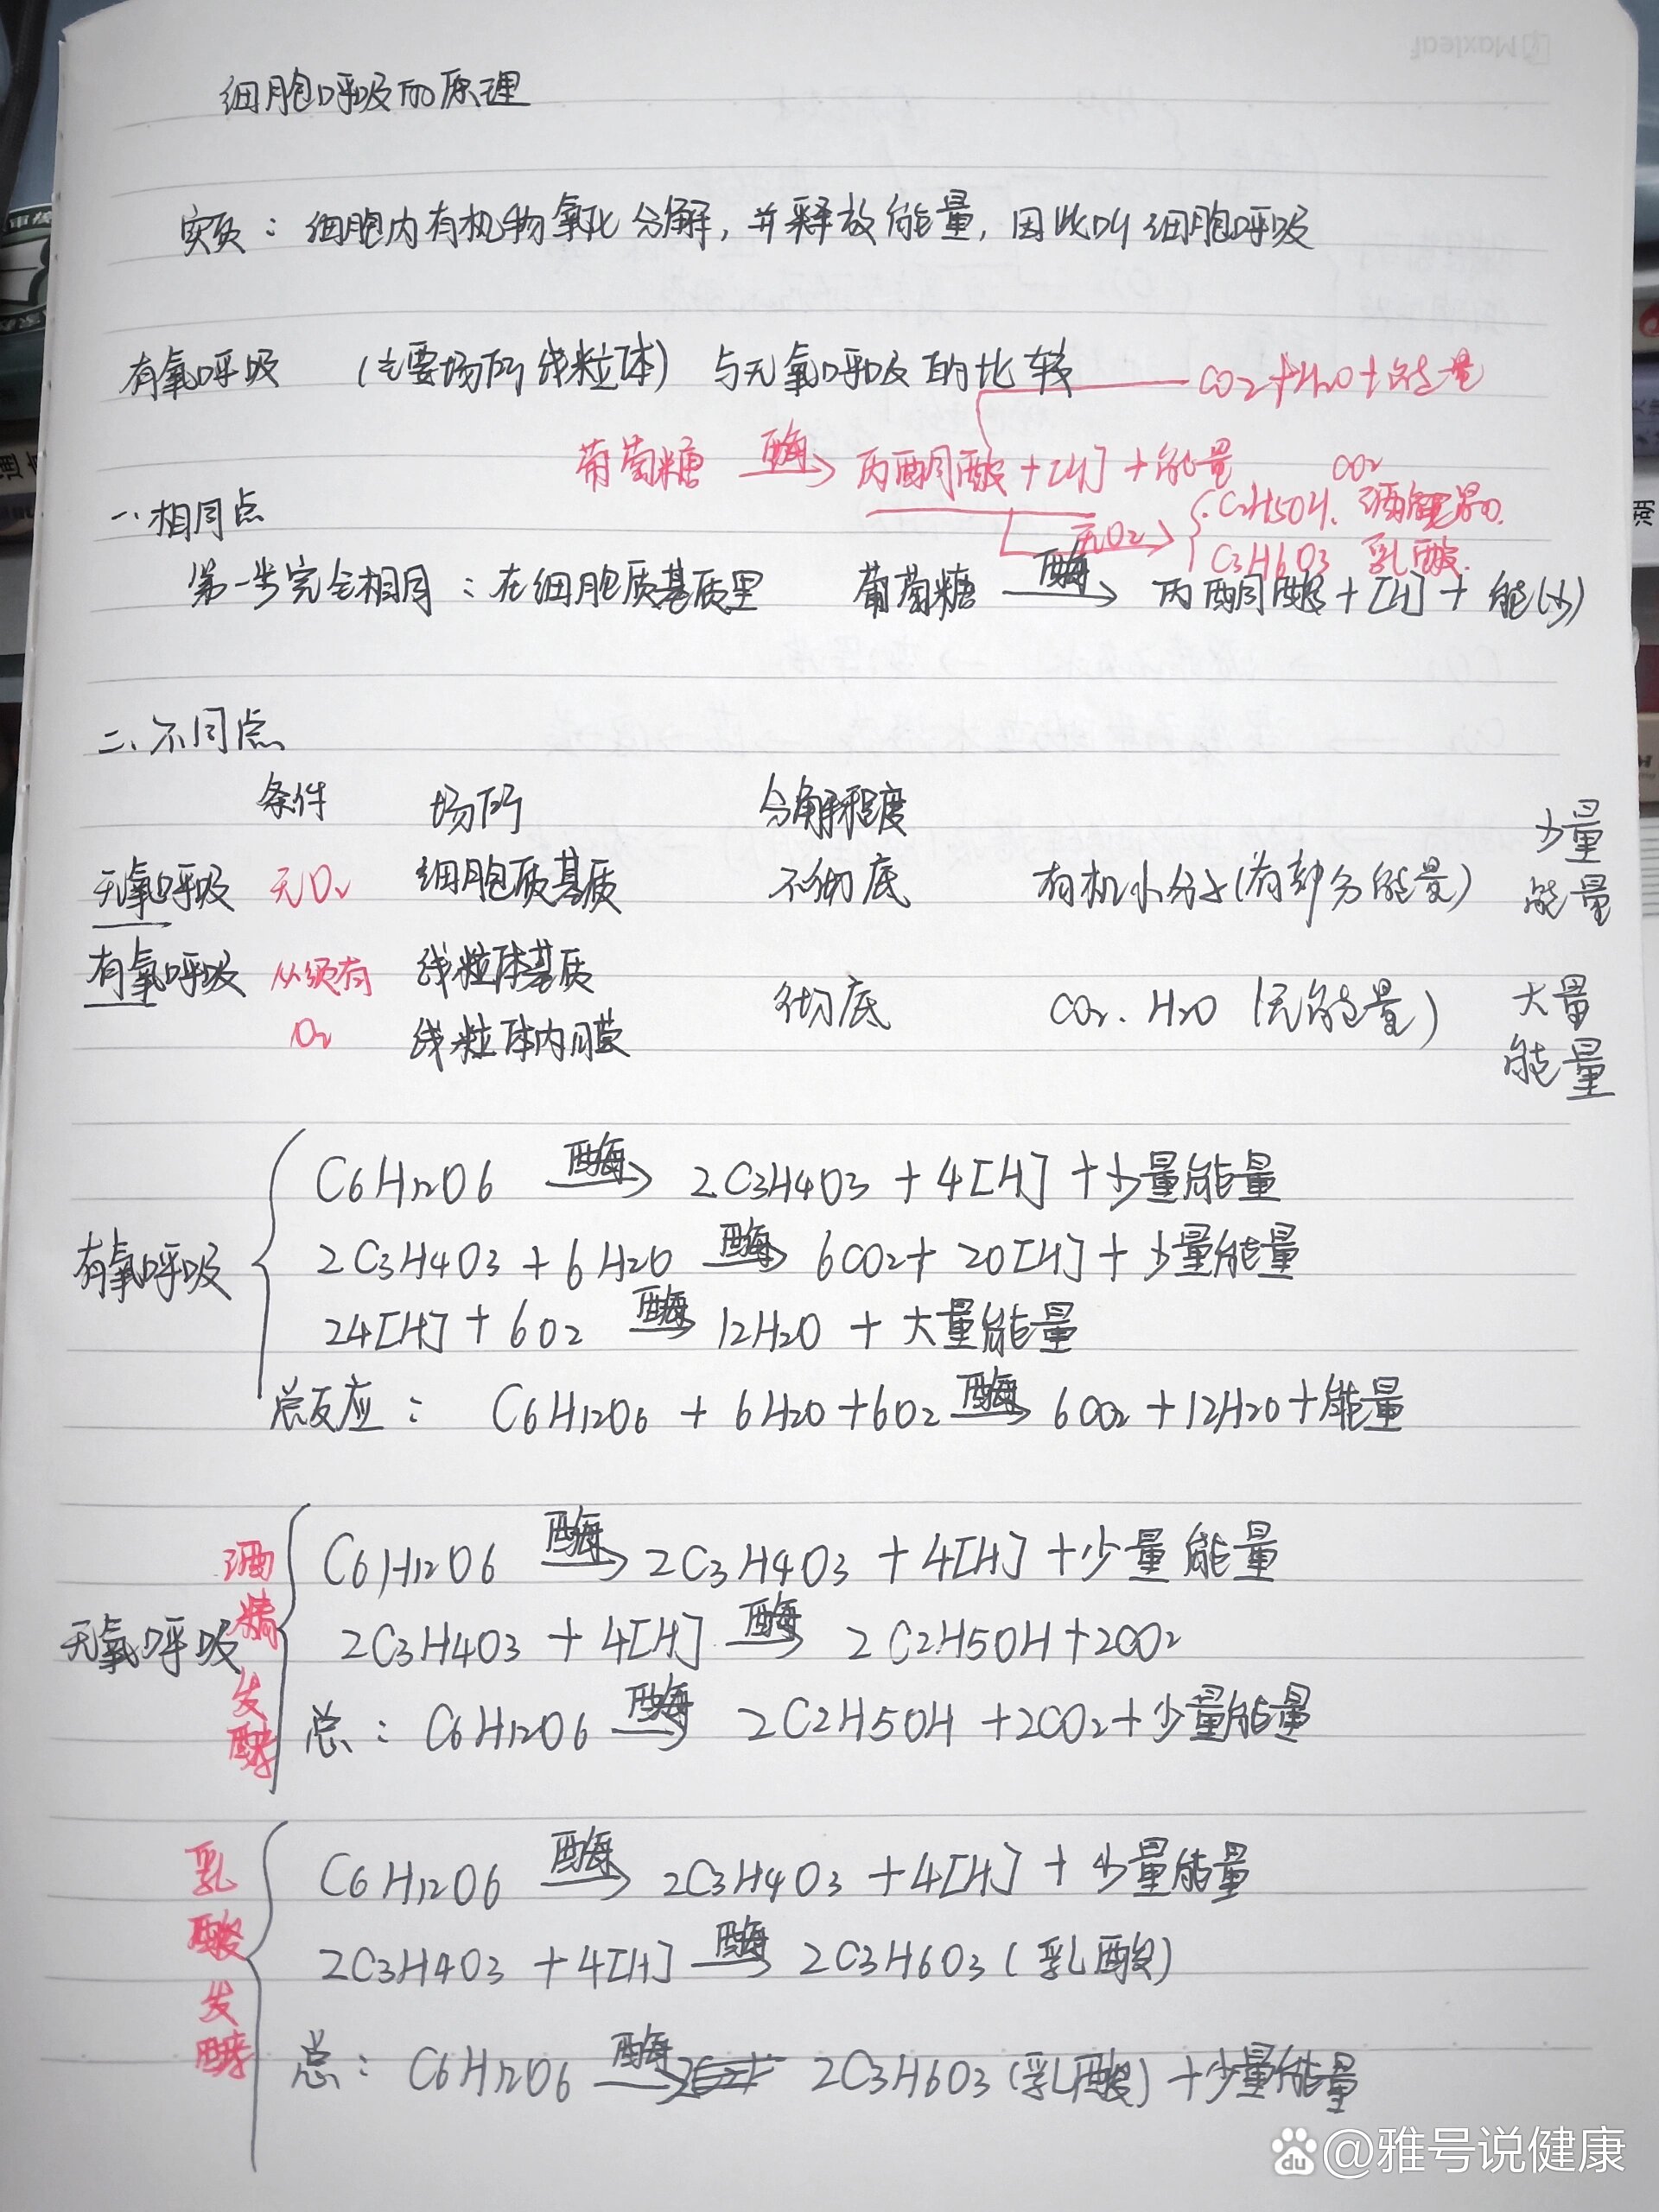 细胞呼吸的原理
实质：细胞内有机物氧化分解，并释放能量，因此叫细胞呼吸
有氧呼吸 （主要场所线粒体）与无氧呼吸的比较
CO2+H2O+能量
葡萄糖 酶→ 丙酮酸+[H]+能量
CO2
无O2→ { C2H5OH、酒精
C3H6O3 乳酸.
一、相同点
第一步完全相同：在细胞质基质里 葡萄糖 酶→ 丙酮酸+[H]+能(少)
二、不同点
条件 场所 分解程度
无氧呼吸 无O2 细胞质基质 不彻底 有机小分子(有部分能量) 少量能量
有氧呼吸 必须有O2 线粒体基质 线粒体内膜 彻底 CO2.H2O (无能量) 大量能量
有氧呼吸 { C6H12O6 酶→ 2C3H4O3+4[H]+少量能量
2C3H4O3+6H2O 酶→ 6CO2+20[H]+少量能量
24[H]+6O2 酶→ 12H2O+大量能量
总反应：C6H12O6+6H2O+6O2 酶→ 6CO2+12H2O+能量
无氧呼吸 酒精发酵 { C6H12O6 酶→ 2C3H4O3+4[H]+少量能量
2C3H4O3+4[H] 酶→ 2C2H5OH+2CO2
总：C6H12O6 酶→ 2C2H5OH+2CO2+少量能量
乳酸发酵 { C6H12O6 酶→ 2C3H4O3+4[H]+少量能量
2C3H4O3+4[H] 酶→ 2C3H6O3(乳酸)
总：C6H12O6 酶→ 2C3H6O3(乳酸)+少量能量
Maxleaf
du @雅号说健康